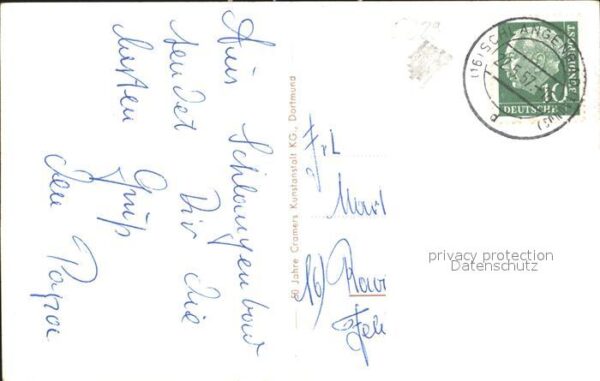 Aus Schlangenbad
sendet Dir die
besten Grüß
dein Papa
60 Jahre Cramers Kunstanstalt KG., Dortmund
Frl
(16) SCHLANGENBAD
57
10
DEUTSCHE BUNDESPOST
privacy protection
Datenschutz
16)